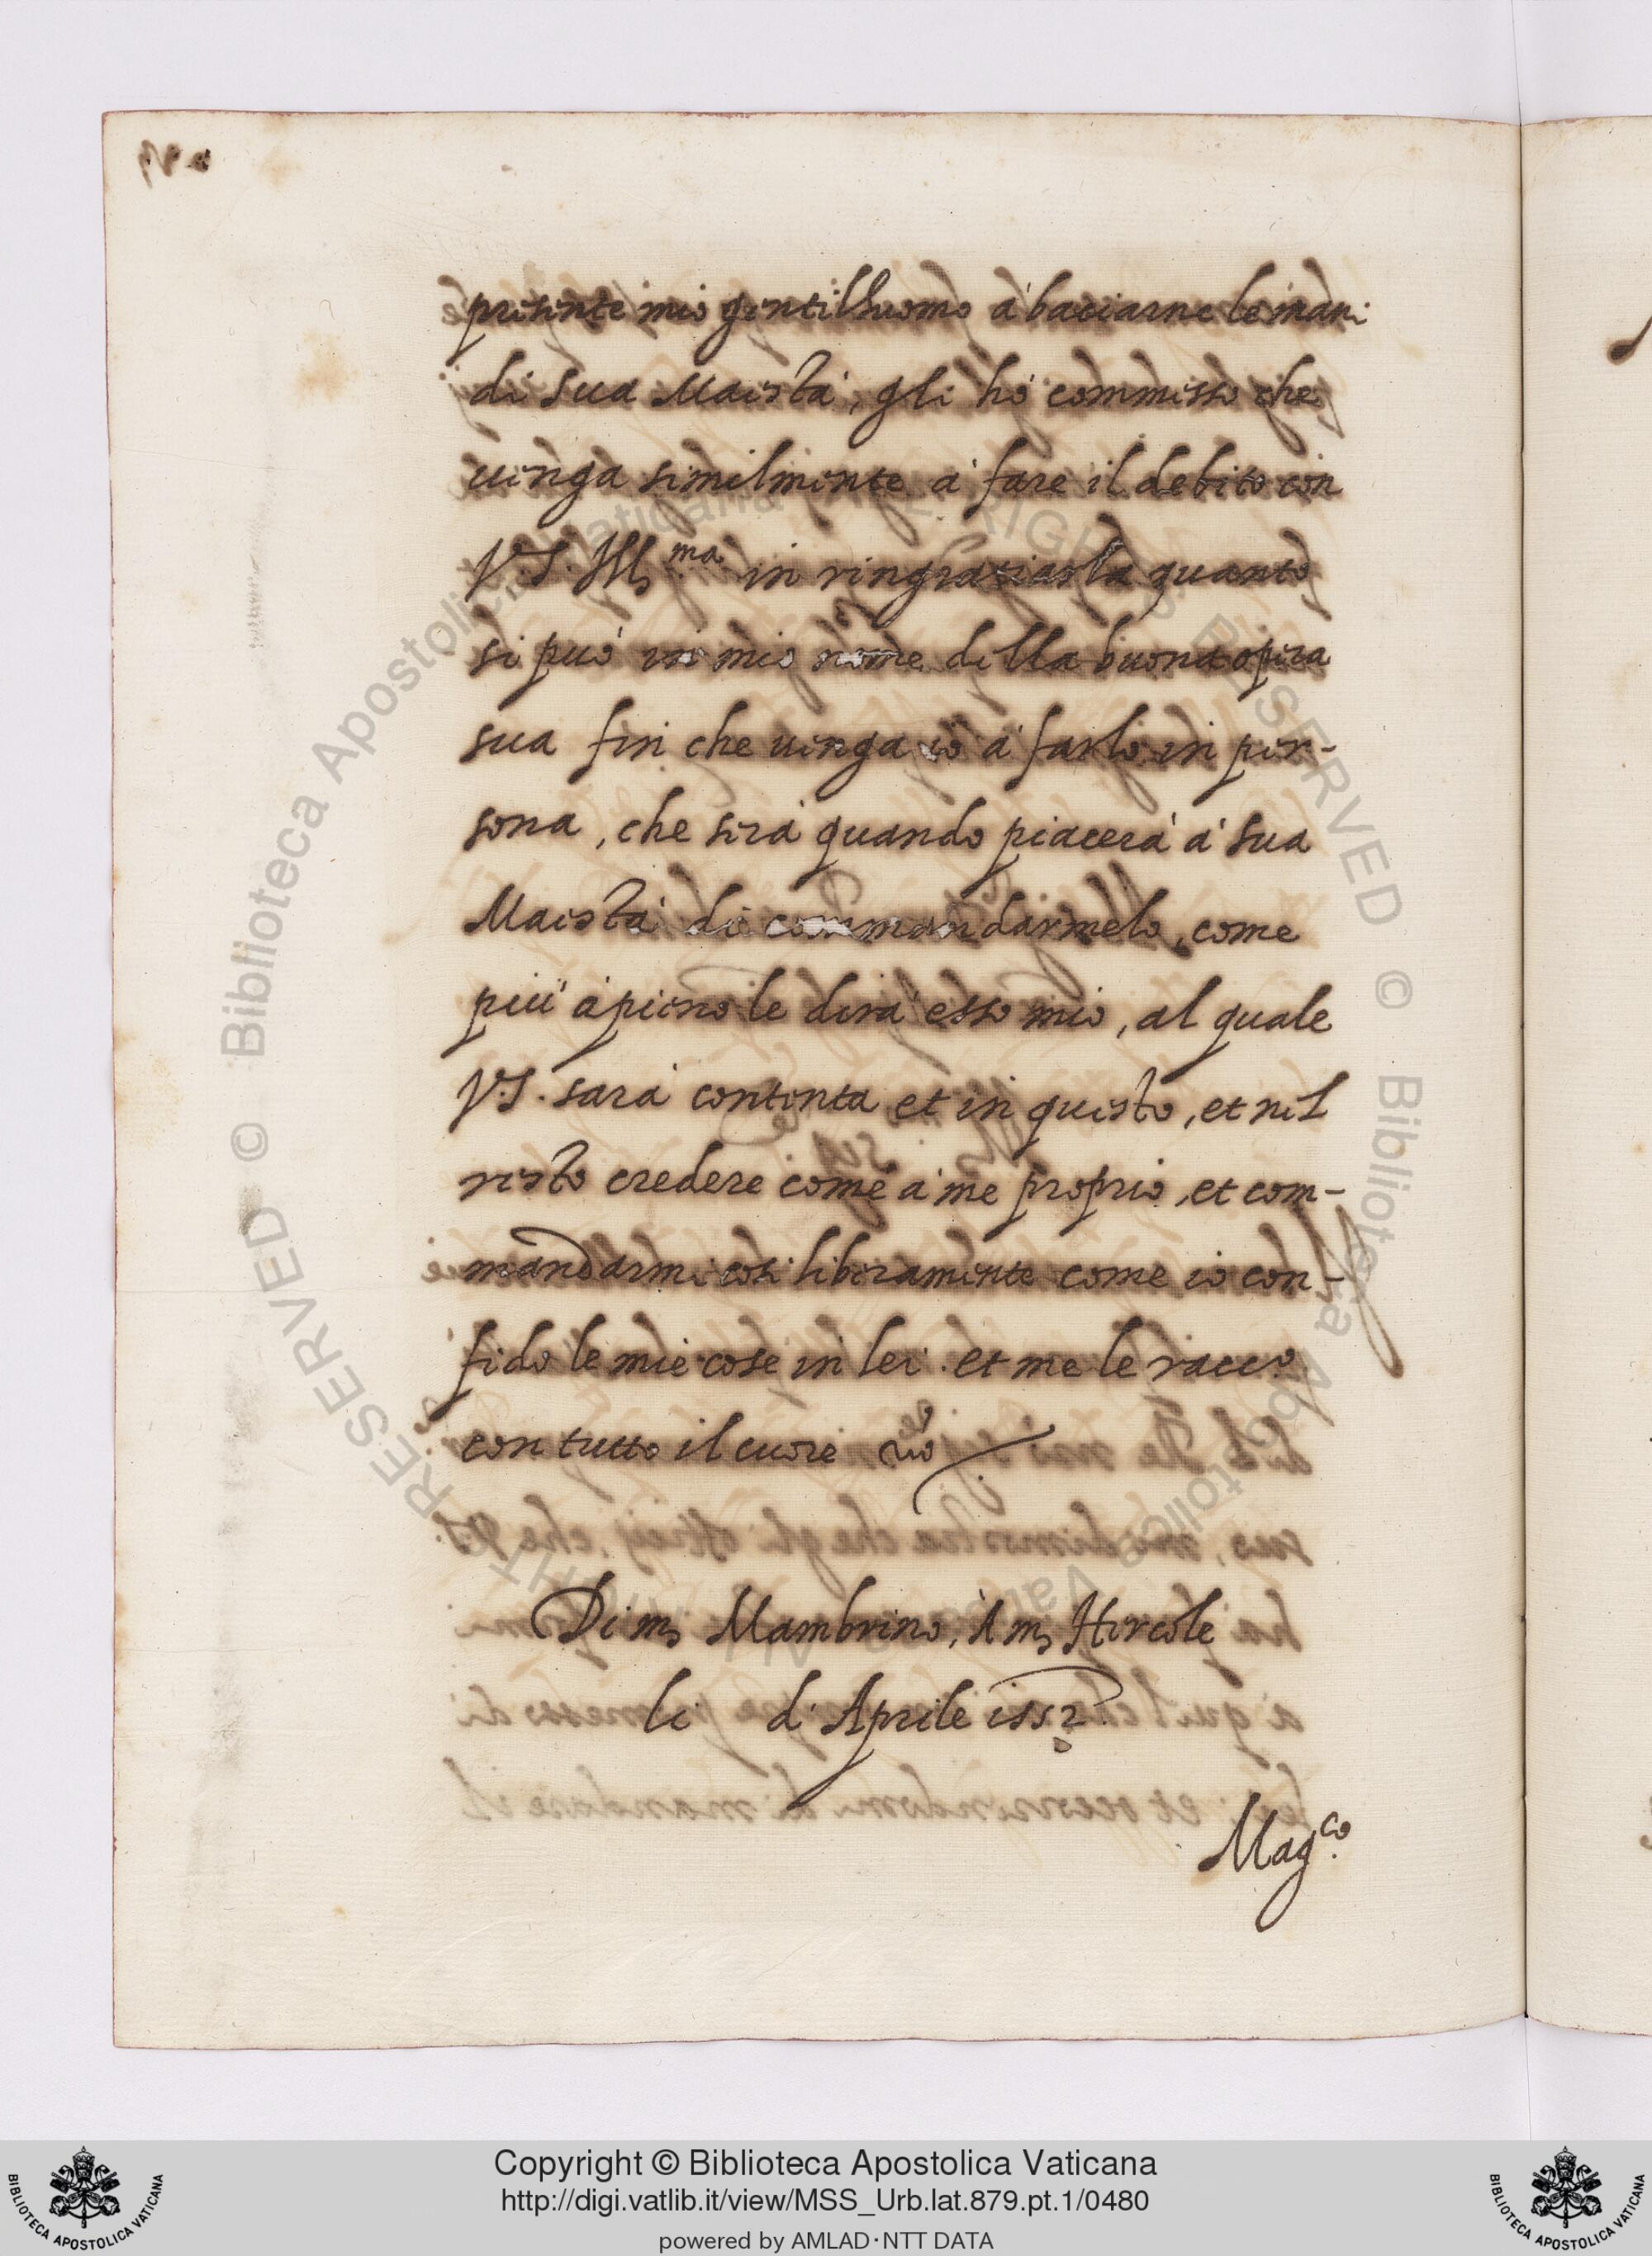 presente mio gentilhuomo à baciarne le mani
di Sua Maestà, gli hò commesso che
uenga similmente à fare il debito con
V.S. Ill.ma in ringratiarla quanto
si può in mio nome della buona opera
sua fin che uenga io à farlo in per-
sona, che serà quando piacerà à Sua
Maestà di commandarmelo, come
più à pieno le dirà esso mio, al quale
V.S. sarà contenta et in questo, et nel
resto credere come à me proprio, et com-
mandarmi così liberamente come io con-
fido le mie cose in lei. et me le racc.o
con tutto il cuore
Di m. Mambrino, À m. Hercole
li d'Aprile 1552.
Mag.co
© Biblioteca Apostolica Vaticana
ALL RIGHTS RESERVED
Copyright © Biblioteca Apostolica Vaticana
http://digi.vatlib.it/view/MSS_Urb.lat.879.pt.1/0480
powered by AMLAD·NTT DATA
BIBLIOTECA APOSTOLICA VATICANA
BIBLIOTECA APOSTOLICA VATICANA